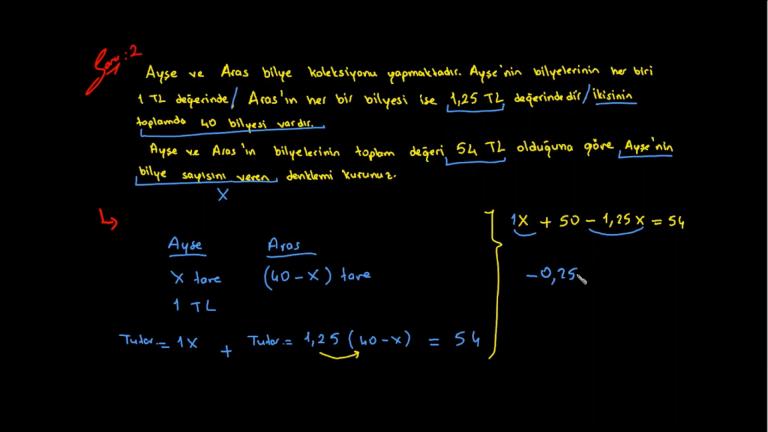 Soru: 2
Ayşe ve Aras bilye koleksiyonu yapmaktadır. Ayşe'nin bilyelerinin her biri
1 TL değerinde / Aras'ın her bir bilyesi ise 1,25 TL değerindedir / ikisinin
toplamda 40 bilyesi vardır.
Ayşe ve Aras'ın bilyelerinin toplam değeri 54 TL olduğuna göre, Ayşe'nin
bilye sayısını veren denklemi kurunuz.
X
Ayşe Aras
X tane (40-X) tane
1 TL
Tutar = 1X + Tutar = 1,25 (40-X) = 54
1X + 50 - 1,25X = 54
-0,25